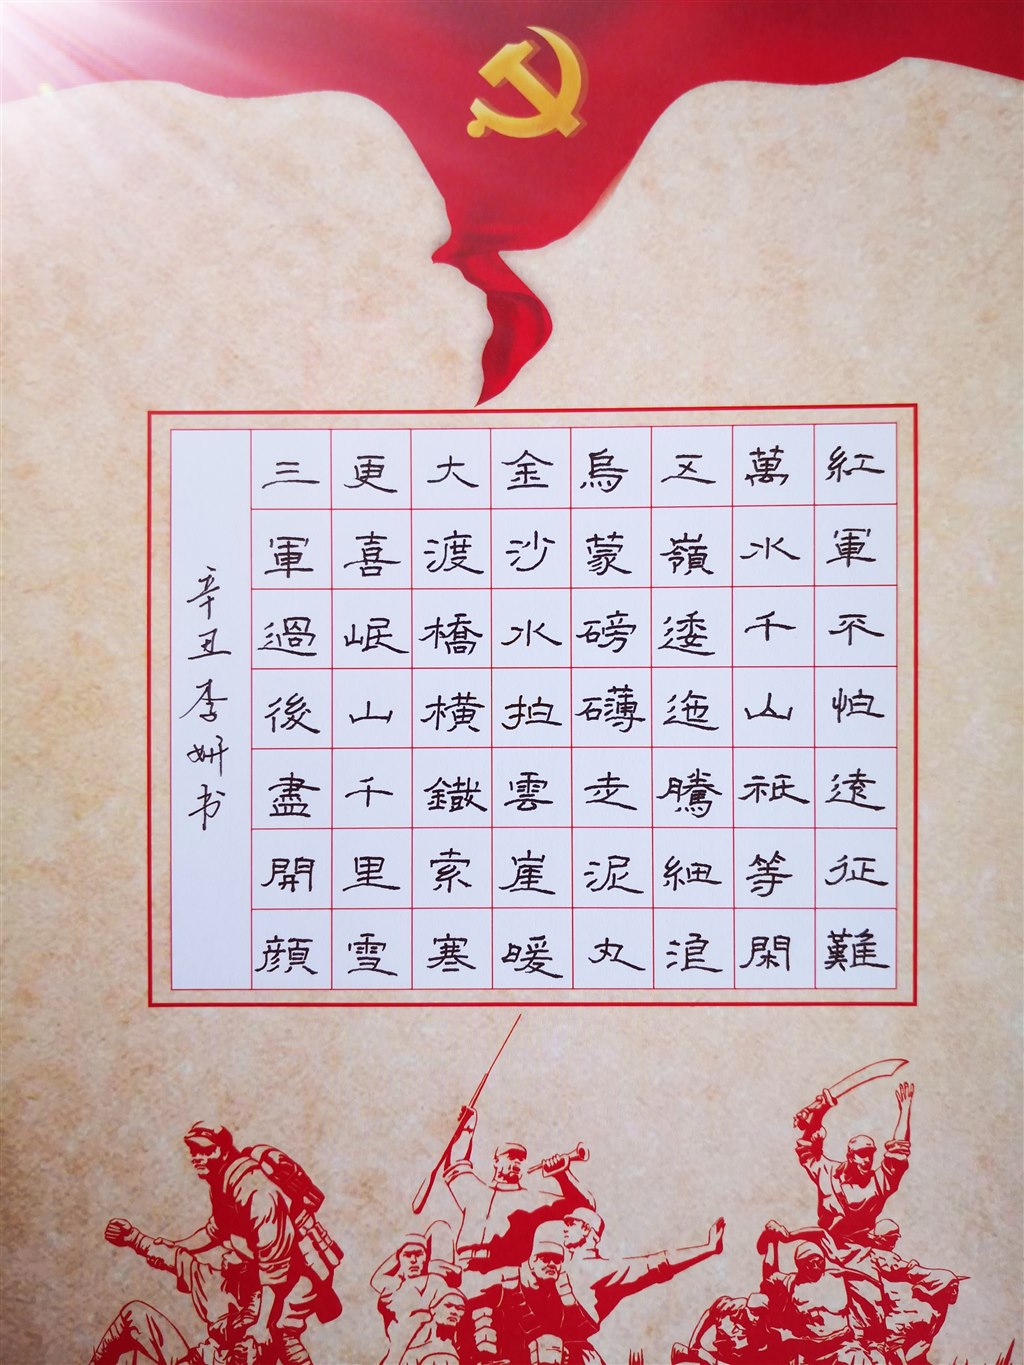 紅軍不怕遠征難
萬水千山祇等閑
五嶺逶迤騰細浪
烏蒙磅礴走泥丸
金沙水拍雲崖暖
大渡橋橫鐵索寒
更喜岷山千里雪
三軍過後盡開顏
辛丑李妍书